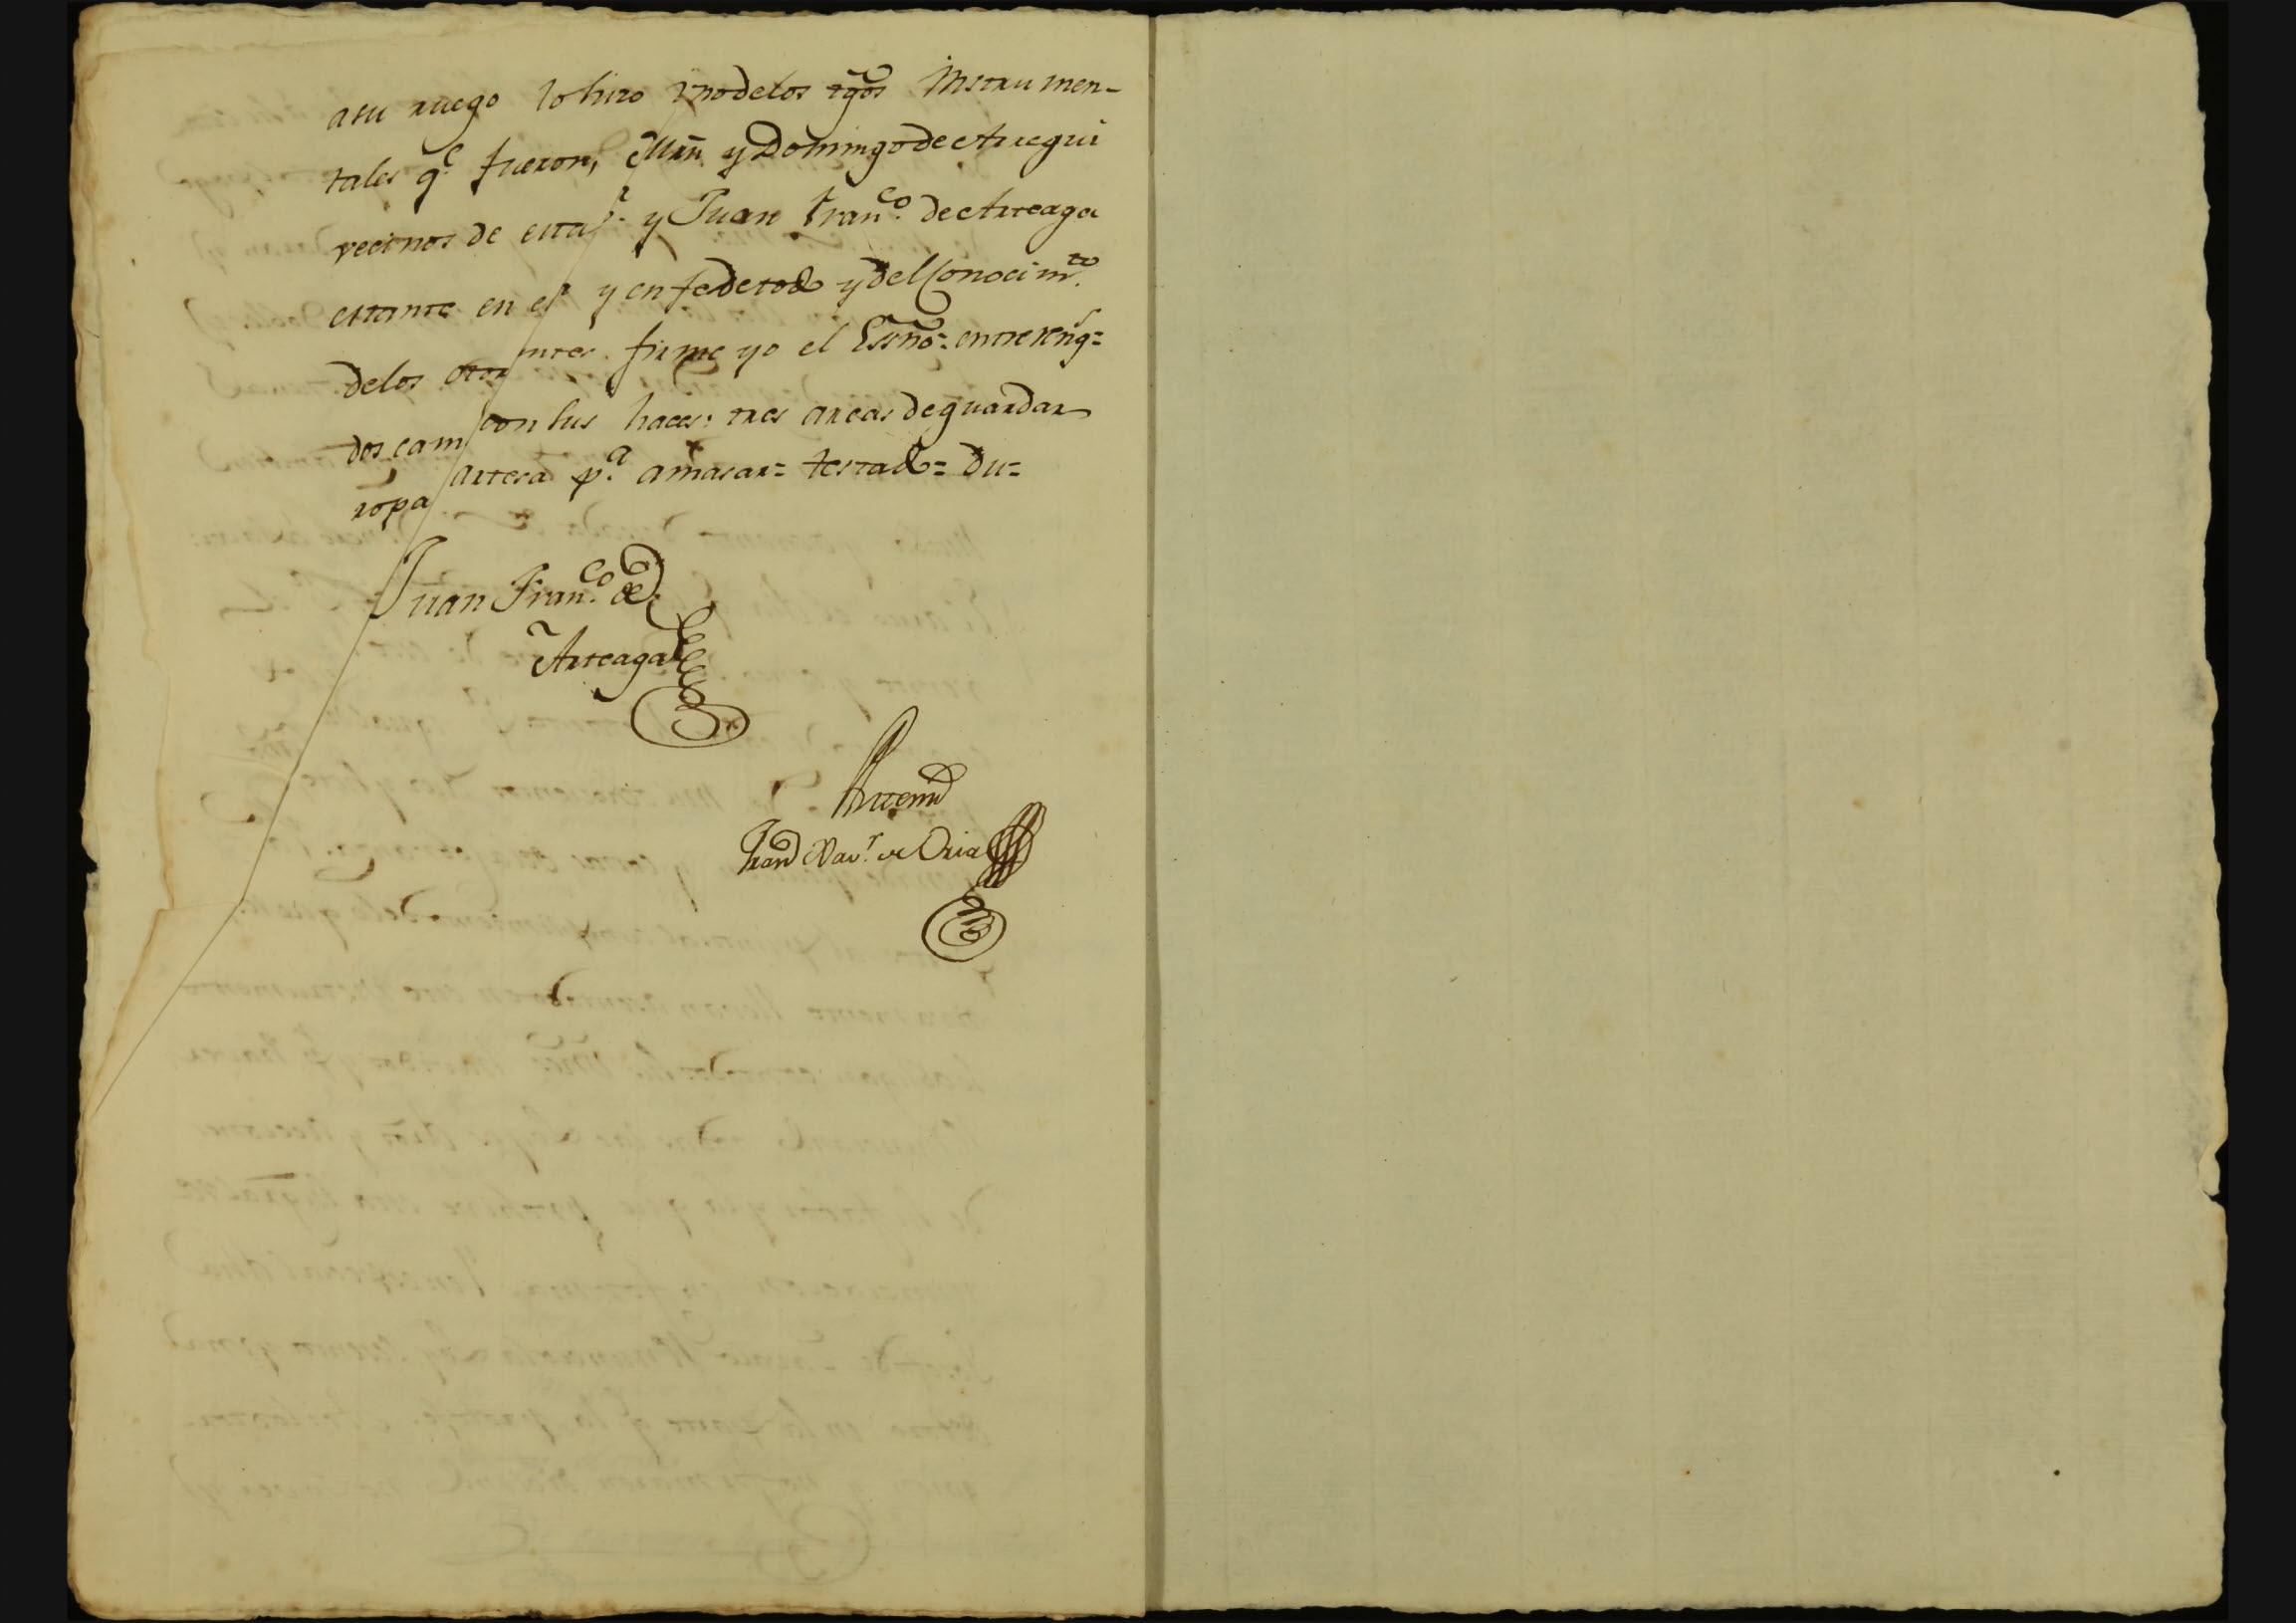 a su ruego lo hizo vno de los tgos Instrumen-
tales q.e fueron, Mrn y Domingo de Aregui
vecinos de esta y Juan Fran.co de Arteaga
estante en e y en fe de todo y del Conocim.to
de los otor ntes firme yo el Essno= entrereng=
dos cam con sus haces: tres arcas de guardar
ropa artesa p.a amasar= testado= du=
Juan Fran.co de
Arteaga
Ante mi
Fran.co Xav.r de Oria